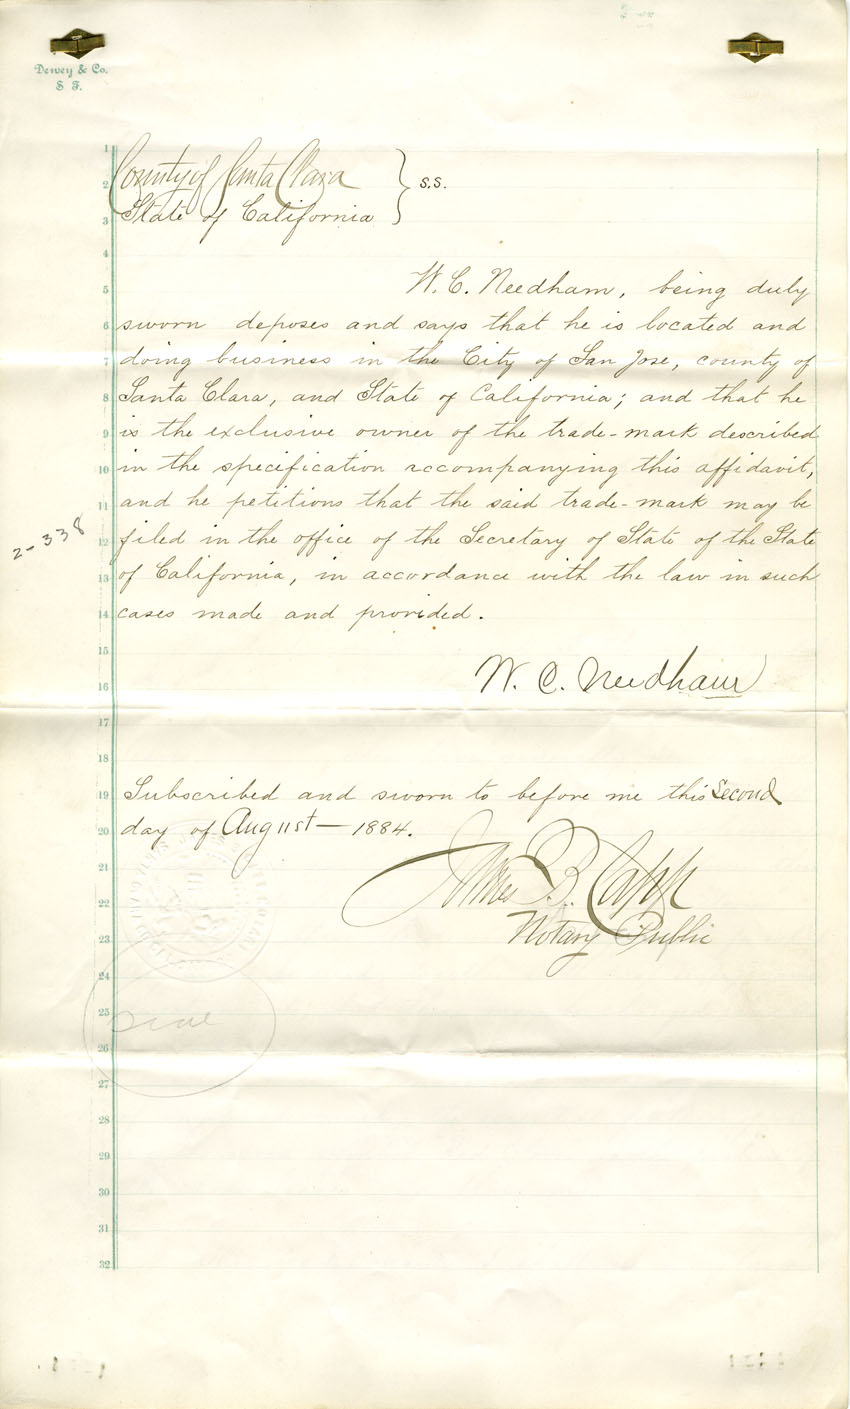 Dewey & Co.
S. F.
County of Santa Clara
State of California } s.s.
W. C. Needham, being duly
sworn deposes and says that he is located and
doing business in the City of San Jose, county of
Santa Clara, and State of California; and that he
is the exclusive owner of the trade-mark described
in the specification accompanying this affidavit,
and he petitions that the said trade-mark may be
filed in the office of the Secretary of State of the State
of California, in accordance with the law in such
cases made and provided.
2-338
W. C. Needham
Subscribed and sworn to before me this Second
day of August — 1884.
James B. Capp
Notary Public
seal
1
2
3
4
5
6
7
8
9
10
11
12
13
14
15
16
17
18
19
20
21
22
23
24
25
26
27
28
29
30
31
32